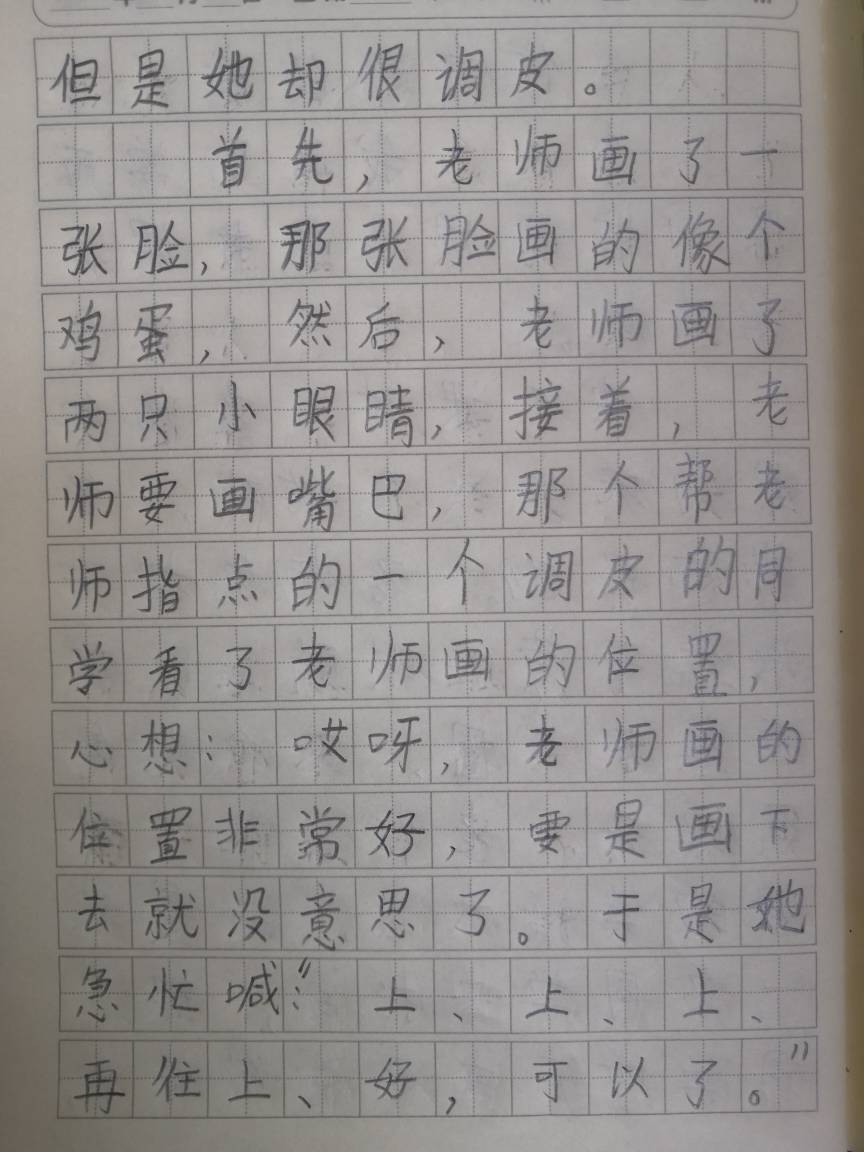 但是她却很调皮。
首先，老师画了一
张脸，那张脸画的像个
鸡蛋，然后，老师画了
两只小眼睛，接着，老
师要画嘴巴，那个帮老
师指点的一个调皮的同
学看了老师画的位置，
心想：哎呀，老师画的
位置非常好，要是画下
去就没意思了。于是她
急忙喊：“上、上、上、
再往上、好，可以了。”